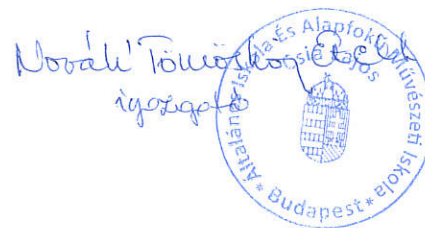 Novák Tömöskog
igazgató
Általános Iskola És Alapfokú Művészeti Iskola
* Budapest *